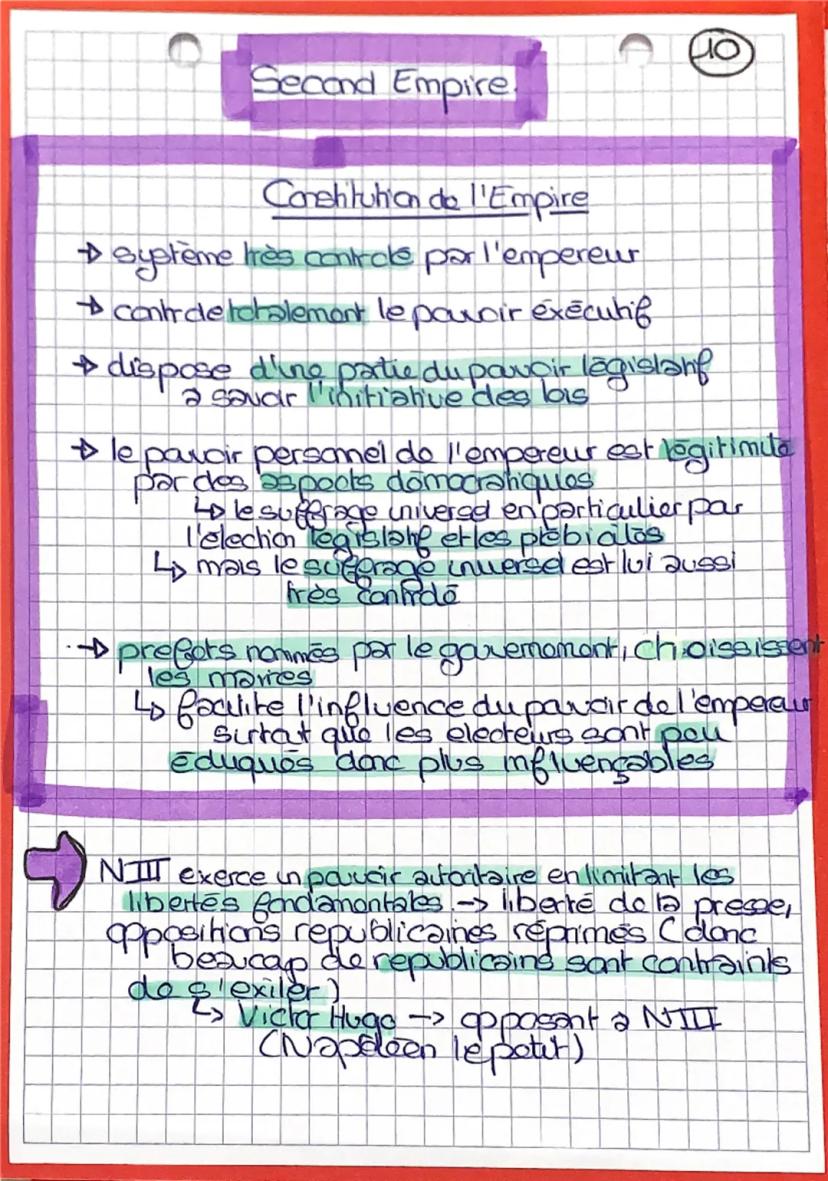 10
Second Empire.
Constitution de l'Empire
→ système très controlé par l'empereur
→ controle totalement le pouvoir éxécutif
→ dispose d'une partie du pouvoir législatif
a savoir l'initiative des lois
→ le pouvoir personnel de l'empereur est légitimité
par des aspects démocratiques
↳ le suffrage universel en particulier par
l'election législatif et les plébicites
↳ mais le suffrage universel est lui aussi
très controlé
→ prefets nommés par le gouvernement, choississent
les maires
↳ facilite l'influence du pouvoir de l'empereur
surtout que les electeurs sont peu
éduqués donc plus influençables
NIII exerce un pouvoir autoritaire en limitant les
libertés fondamentales → liberté de la presse,
oppositions republicaines réprimés (donc
beaucoup de republicains sont contraints
de s'exiler)
↳ Victor Hugo → opposant a NIII
(Napoléon le petit)